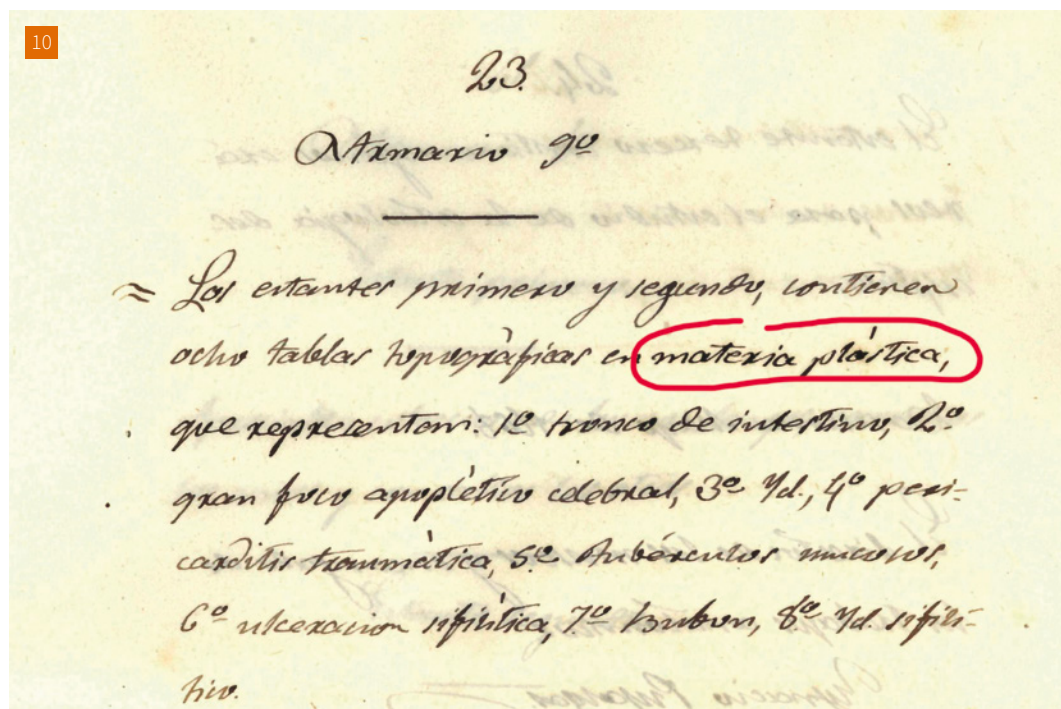 10
23.
Armario 9º
= Los estantes primero y segundo, contienen
ocho tablas topográficas en materia plástica,
que representan: 1º tronco de intestino, 2º
gran foco apoplético celebral, 3º Yd., 4º peri-
carditis traumática, 5º tubérculos mucosos,
6º ulceracion sifilítica, 7º bubon, 8º Yd. sifilí-
tico.